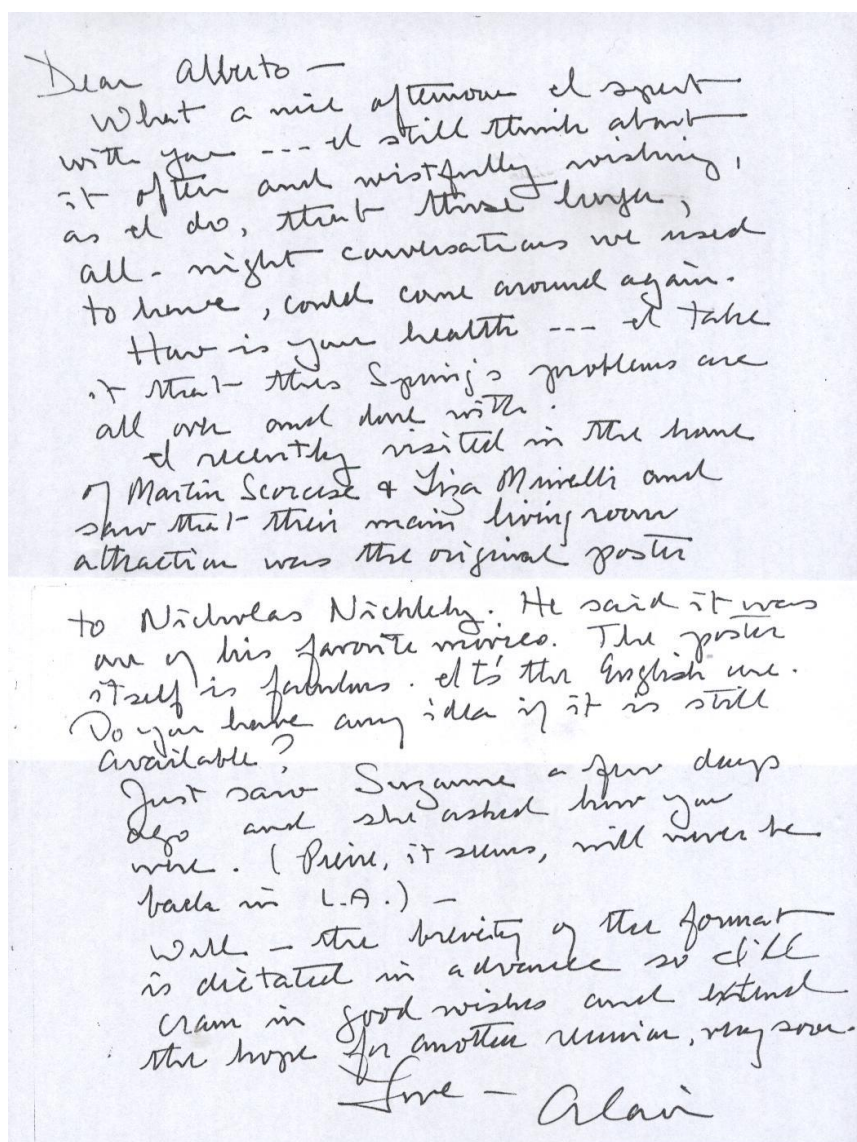 Dear Alberto —
What a nice afternoon I spent
with you --- I still think about
it often and wistfully wishing,
as I do, that those longer,
all-night conversations we used
to have, could come around again.
How is your health --- I take
it that this Spring's problems are
all over and done with.
I recently visited in the home
of Martin Scorcese & Liza Minelli and
saw that their main living room
attraction was the original poster
to Nicholas Nickleby. He said it was
one of his favorite movies. The poster
itself is fabulous. It's the English one.
Do you have any idea if it is still
available?
Just saw Suzanne a few days
ago and she asked how you
were. (Pierre, it seems, will never be
back in L.A.) —
Well — the brevity of the format
is dictated in advance so I'll
cram in good wishes and extend
the hope for another reunion, very soon.
Love — Alain